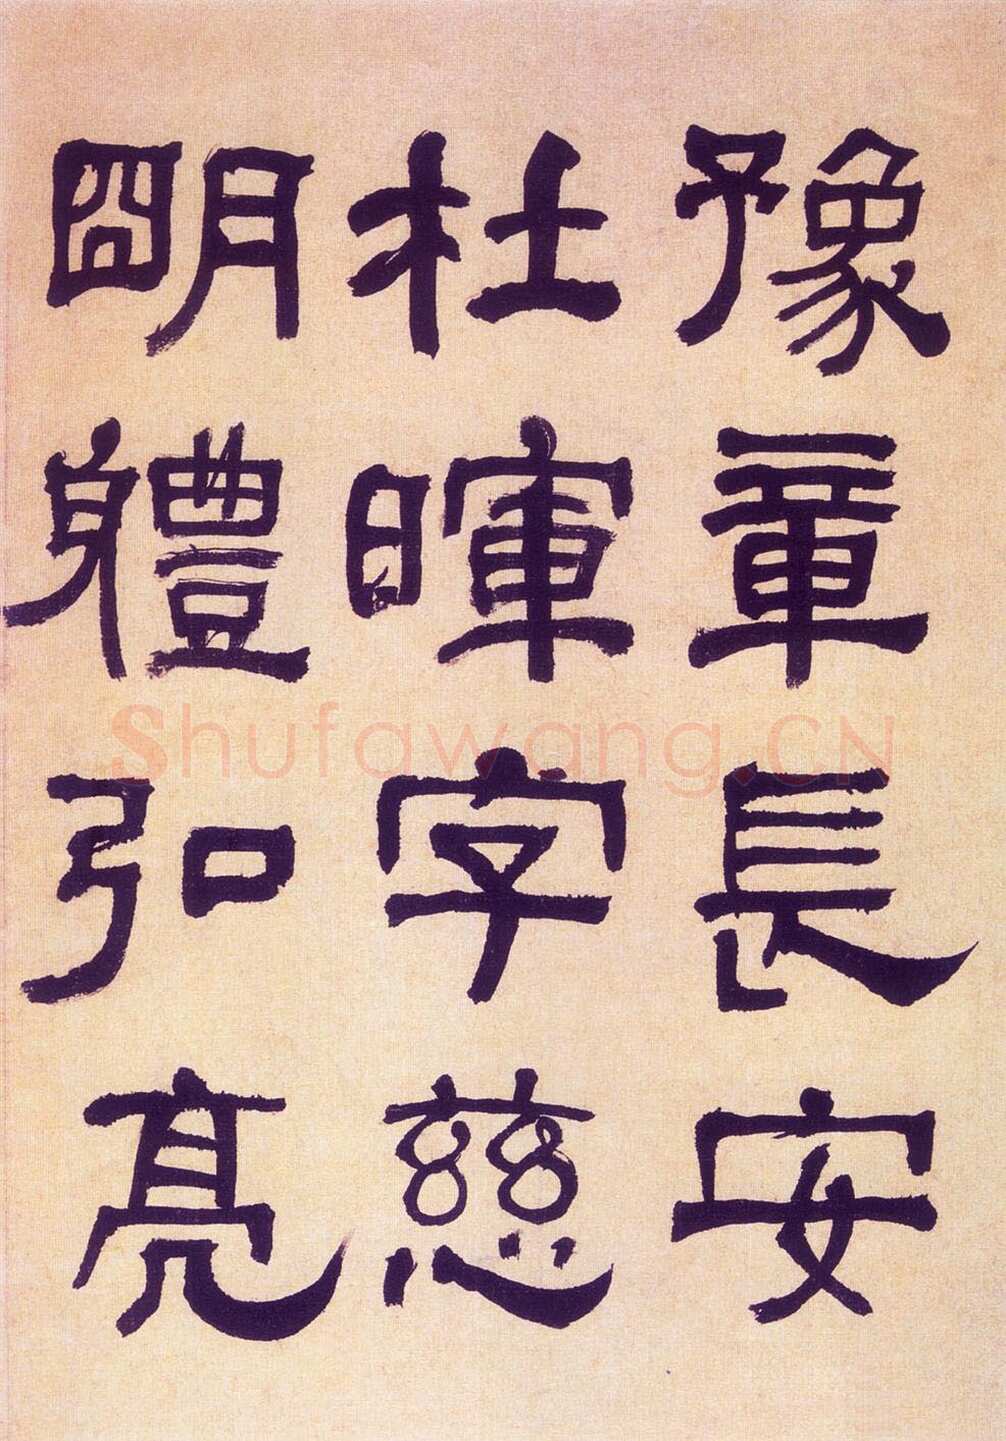 豫章長安
杜暉字慈
明體弘亮
Shufawang.CN